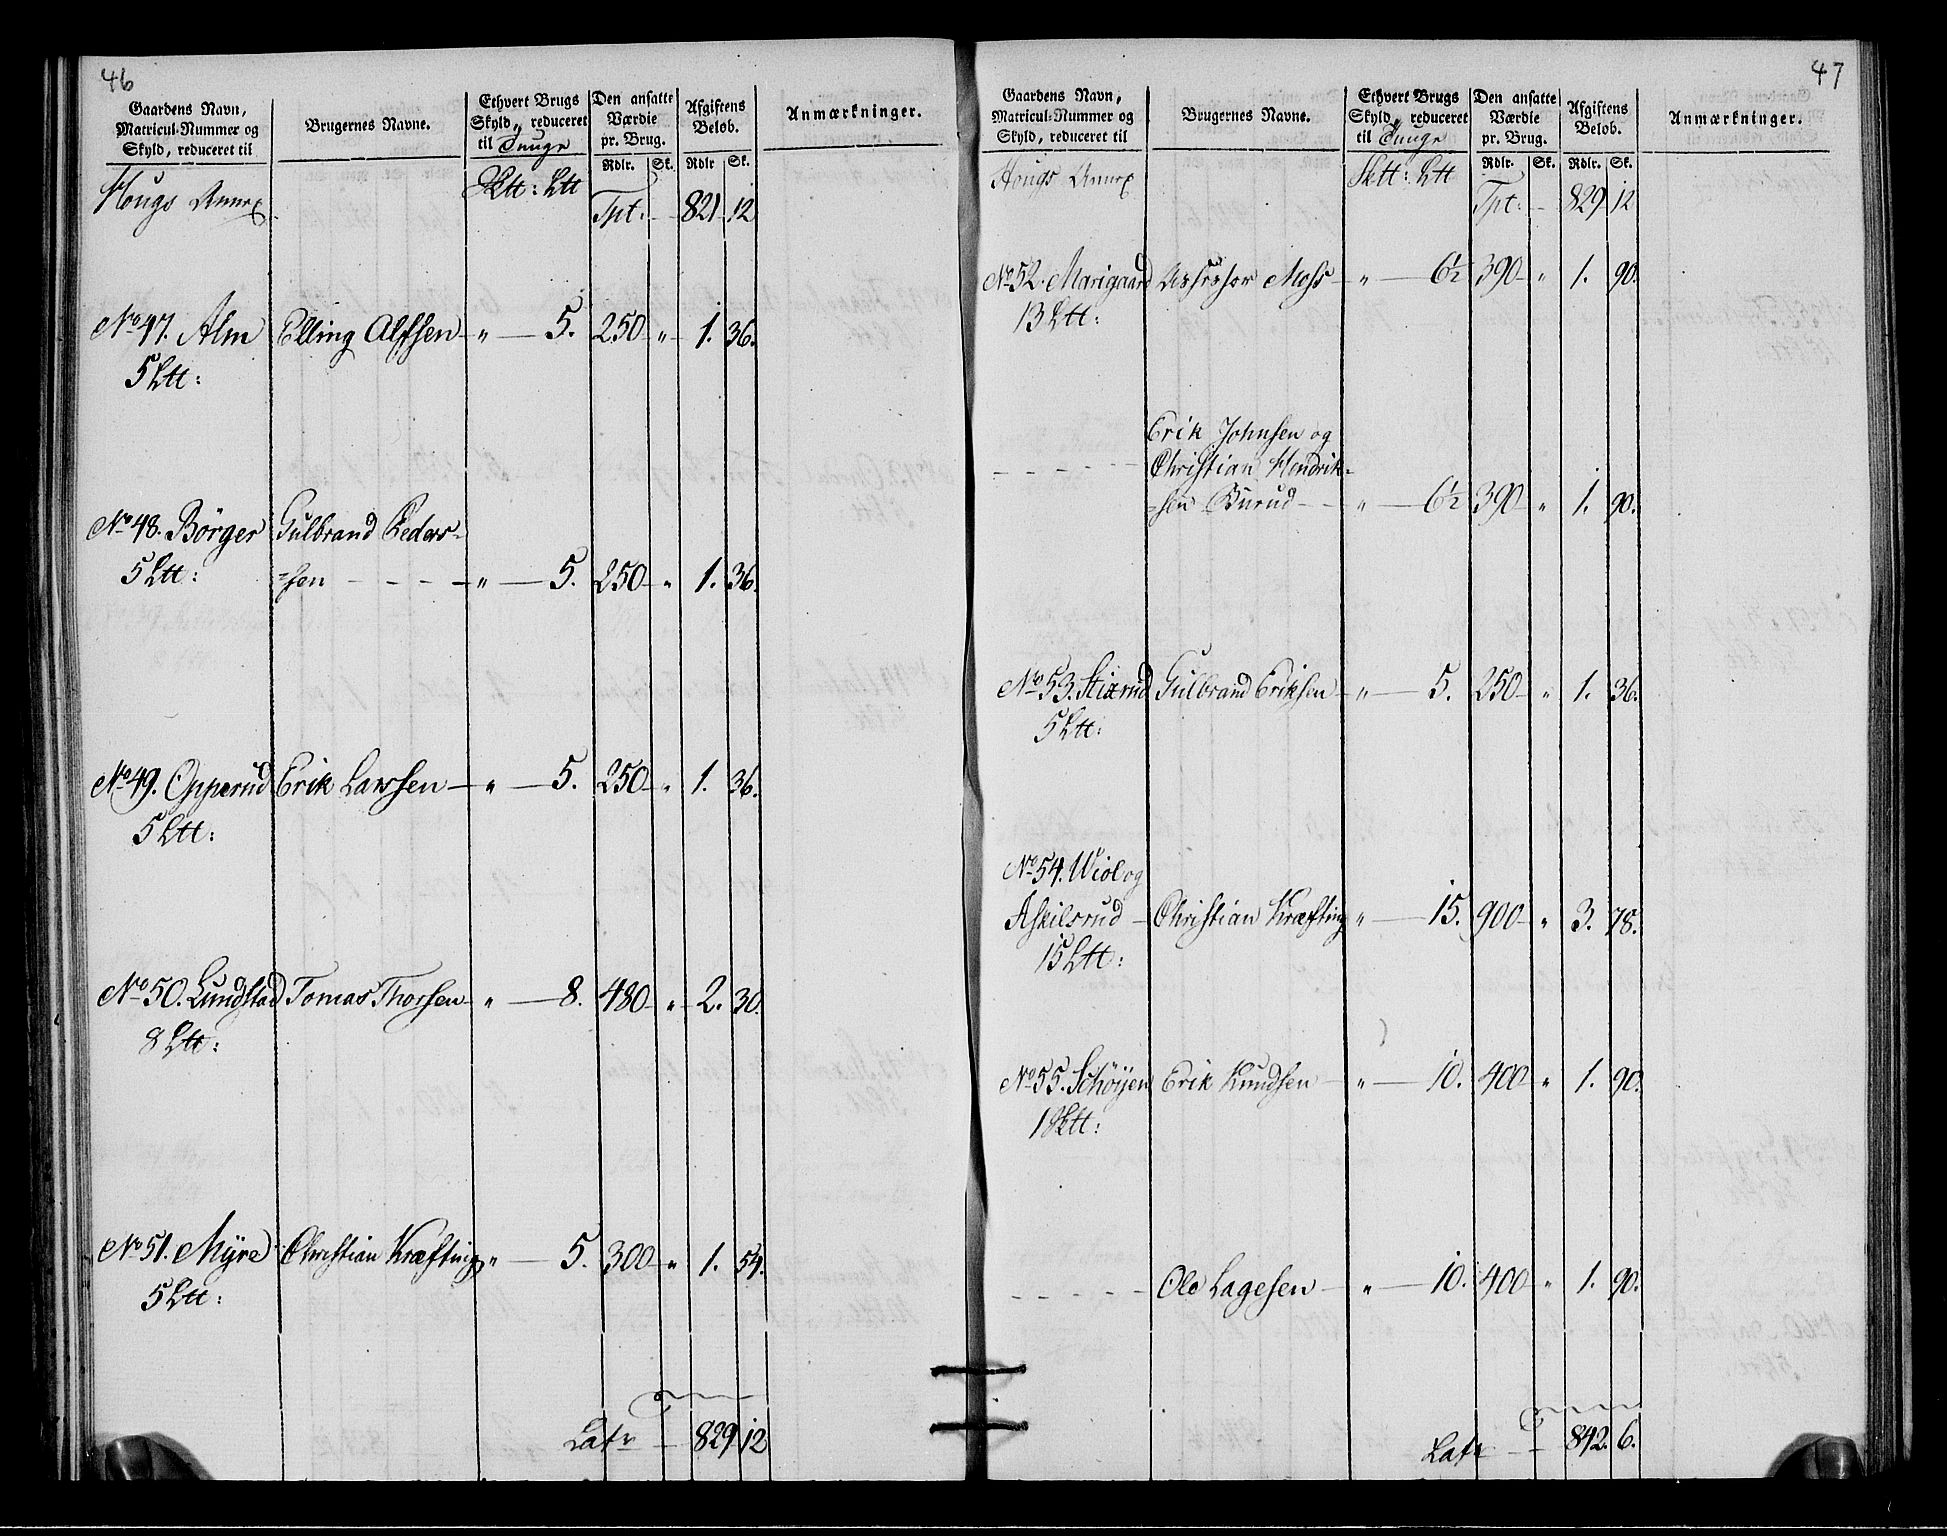 46
Gaardens Navn, Matricul-Nummer og Skyld, reduceret til | Brugernes Navne. | Ethvert Brugs Skyld, reduceret til Tunge | Den ansatte Værdie pr. Brug. | Afgiftens Beløb. | Anmærkninger.
Rdlr. Sk. Rdlr Sk.
Hougs Annex Sktt: Ltt Tpt: 821 12
No 47. Alm Elling Alfsen " 5. 250 " 1. 36.
5 Ltt:
No 48. Börger Gulbrand Peders-
5 Ltt: =sen " 5. 250 " 1. 36.
No 49. Opperud Erik Larssen " 5. 250 " 1. 36.
5 Ltt:
No 50. Lundstad Tomas Thorsen " 8. 480 " 2. 30.
8 Ltt:
No 51. Myre Christian Kræfting " 5. 300 " 1. 54.
5 Ltt:
Latr 829 12
47
Gaardens Navn, Matricul-Nummer og Skyld, reduceret til | Brugernes Navne. | Ethvert Brugs Skyld, reduceret til Tunge | Den ansatte Værdie pr. Brug. | Afgiftens Beløb. | Anmærkninger.
Rdlr. Sk. Rdlr. Sk.
Hougs Annex Sktt: Ltt Tpt: 829 12
No 52. Marigaard Assessor Moss " 6½ 390 " 1. 90.
13 Ltt:
Erik Johnsen og
Christian Hendrik-
=sen Burud " 6½ 390 " 1. 90.
No 53. Stixrud Gulbrand Eriksen " 5. 250 " 1. 36.
5 Ltt:
No 54. Wiol og
Askilsrud Christian Kræfting " 15. 900 " 3. 78.
15 Ltt:
No 55. Schöyen Erik Knudsen " 10. 400 " 1. 90.
1 Sktt:
Ole Lagesen " 10. 400 " 1. 90.
Latr 842. 6.